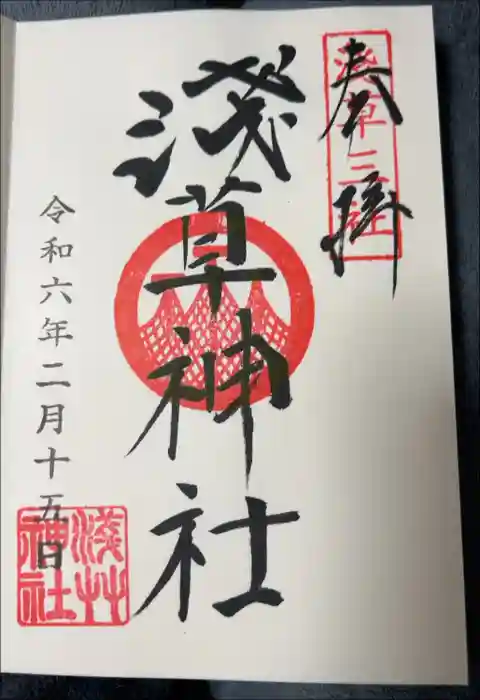 奉拝
淺草三社
淺草神社
令和六年二月十五日
淺草
神社